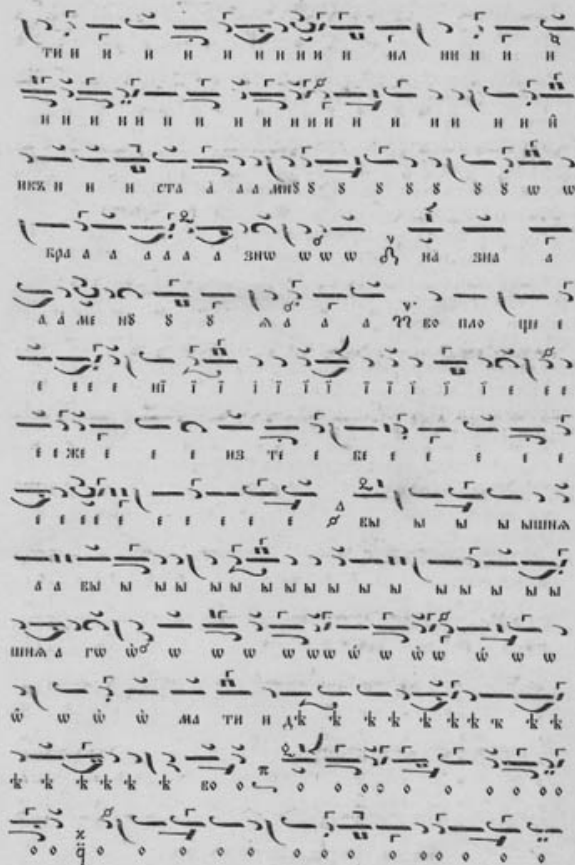 ТИ И И И И И И И И И И ИЛ ИИ И И И
И И И И И И И И И И И И И И И И И И И
ИКЪ И И И СТА А А А МИꙋ ꙋ ꙋ ꙋ ꙋ ꙋ ꙋ ꙋ Ѡ Ѡ
БРА А А А А А А ЗНѠ Ѡ Ѡ Ѡ НА ЗНА А
А А МЕ Нꙋ ꙋ ꙋ Ѧ А А А ВО ПЛО ЩЕ Е
Е Е Е Е НЇ Ї Ї Ї Ї Ї Ї Ї Ї Ї Ї Ї Е Е Е
Е Е ЖЕ Е Е Е ИЗ ТЕ Е БЕ Е Е Е Е Е Е
Е Е Е Е Е Е Е Е Е Е Е ВЫ Ы Ы Ы ЫШНѦ
А А ВЫ Ы Ы Ы Ы Ы Ы Ы Ы Ы Ы Ы Ы Ы Ы Ы Ы
ШНѦ А ГѠ Ѡ Ѡ Ѡ Ѡ Ѡ Ѡ Ѡ Ѡ Ѡ Ѡ Ѡ Ѡ Ѡ
Ѡ Ѡ Ѡ Ѡ МА ТИ И ДѢ Ѣ Ѣ Ѣ Ѣ Ѣ Ѣ Ѣ Ѣ Ѣ
Ѣ Ѣ Ѣ Ѣ Ѣ Ѣ ВО О О О О О О О О О О О О
О О О О О О О О О О О О О О